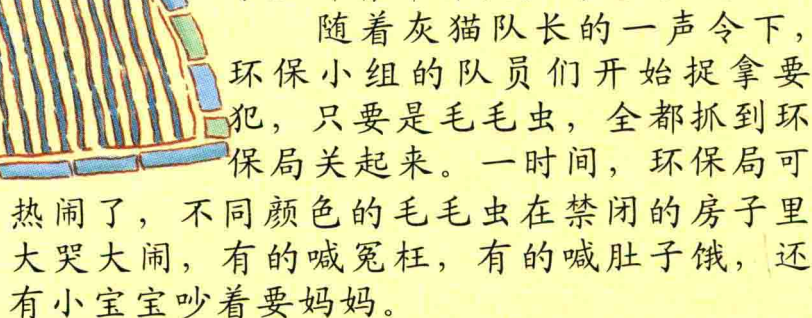 随着灰猫队长的一声令下，
环保小组的队员们开始捉拿要
犯，只要是毛毛虫，全都抓到环
保局关起来。一时间，环保局可
热闹了，不同颜色的毛毛虫在禁闭的房子里
大哭大闹，有的喊冤枉，有的喊肚子饿，还
有小宝宝吵着要妈妈。